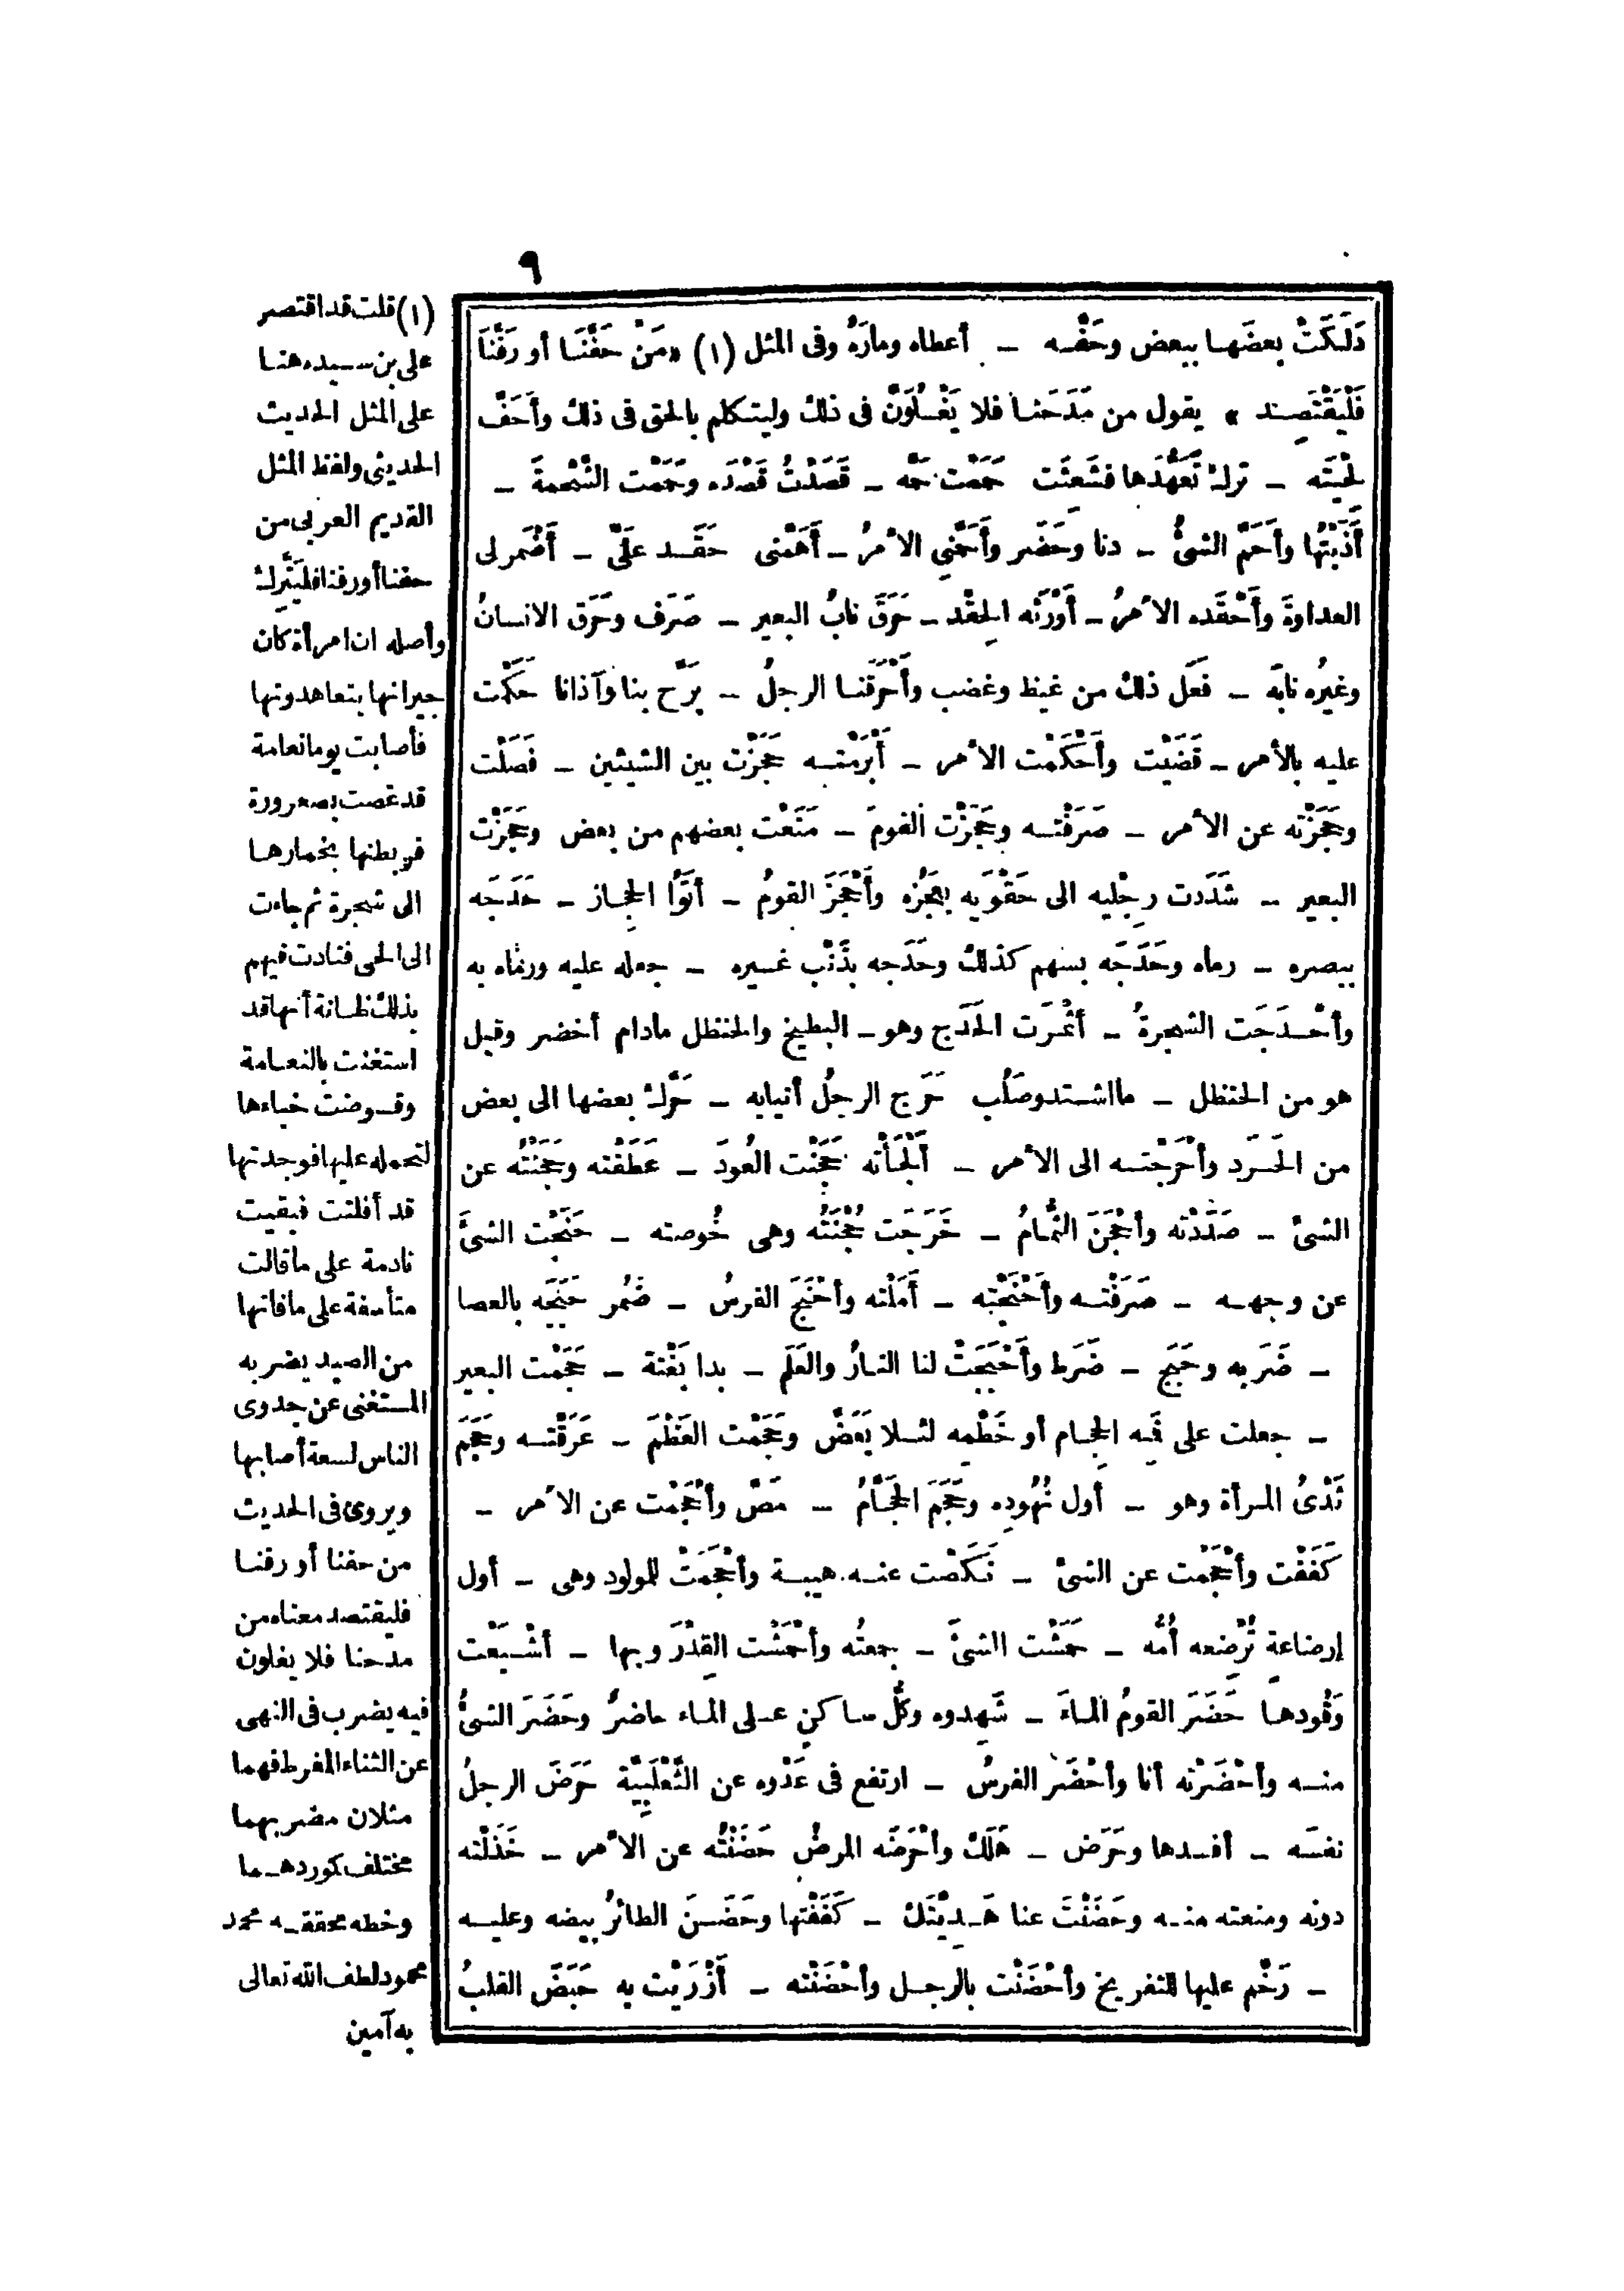 ٩
دَلَكَتْ بعضَها ببعض وحَفَّه - أعطاه ومارَهُ وفى المثل (١) «مَنْ حَفَّنَا أو رَفَّنَا
فَلْيَقْتَصِد» يقول من مَدَحَنا فلا يَغْلُوَنَّ فى ذلك وليتكلم بالحق فى ذلك وأَحَفَّ
لِحْيَتَه - ترك تَعَهُّدَها فشَعِثَت حَمَمْت حَمَّه - قَصَدْتُ قَصْدَه وحَمَمْت الشَّحْمةَ -
أَذَبْتُها وأَحَمَّ الشئُ - دنا وحَضَر وأَحَمَّنِى الأمرُ - أَهَمَّنى حَقَد علَىَّ - أَضْمر لى
العداوةَ وأَحْقَده الأمرُ - أَوْرَثَه الحِقْد - حَرَقَ نابُ البعير - صَرَف وحَرَق الانسانُ
وغيرُه نابَه - فَعَل ذلك من غيظ وغضب وأَحْرَقَنا الرجلُ - بَرَّح بنا وآذانا حَكَمْت
عليه بالأمر - قَضَيْت وأَحْكَمْت الأمر - أَبْرَمْته حَجَزْت بين الشيئين - فَصَلْت
وحَجَزْته عن الأمر - صَرَفْته وحَجَزْت القومَ - مَنَعْت بعضهم من بعض وحَجَزْت
البعير - شَدَدت رِجْليه الى حَقْوَيه بعَجُزه وأَحْجَزَ القومُ - أتَوُا الحِجاز - حَدَجَه
ببصره - رماه وحَدَجَه بسهم كذلك وحَدَجه بذَنْب غيره - جعله عليه ورماه به
وأَحْدَجَت الشجرةُ - أثمْرَت الحَدَج وهو - البطيخ والحنظل مادام أخضر وقيل
هو من الحنظل - ما اشتد وصَلُب حَرَج الرجلُ أنيابه - حَرَّك بعضها الى بعض
من الحَرَد وأَحْرَجْته الى الأمر - أَلْجَأْته حَجَنْت العُودَ - عَطَفْته وحَجَنْتُه عن
الشئ - صَدَدْته وأَحْجَنَ الثُّمامُ - خَرَجَت حُجْنَتُه وهى خُوصته - حَنَجْت الشئَ
عن وجهه - صَرَفْته وأَحْنَجْته - أَمَلْته وأَحْنَجَ الفرسُ - ضَمُر حَبَجَه بالعصا
- ضَرَبه وحَبَج - ضَرَط وأَحْبَجَتْ لنا النارُ والعَلَم - بدا بَغْتة - حَجَمْت البعير
- جعلت على فَمِه الحِجام أو خَطْمِه لئلا يَعَضَّ وحَجَمْت العَظْمَ - عَرَقْته وحَجَمَ
ثَدْىُ المرأة وهو - أول نُهُودِه وحَجَمَ الحَجَّامُ - مَصَّ وأَحْجَمْت عن الأمر -
كَفَفْت وأَحْجَمْت عن الشئ - نَكَصْت عنه هيبة وأَحْجَمَتْ للمولود وهى - أول
إرضاعة تُرْضعه أُمُّه - حَمَشْت الشئَ - جمعتُه وأَحْمَشْت القِدْرَ وبها - أَشْبَعْت
وَقُودها حَضَرَ القومُ الماءَ - شَهِدوه وكُلُّ ساكن على الماء حاضرٌ وحَضَرَ الشئُ
منه وأَحْضَرْته أنا وأَحْضَر الفرسُ - ارتفع فى عَدْوه عن الثَّعْلَبِيَّة حَرَضَ الرجلُ
نفسَه - أفسدها وحَرَض - هَلَكَ وأَحْرَضَه المرضُ حَضَنْتُه عن الأمر - خَذَلْته
دونه ومنعته منه وحَضَنْتَ عنا هَدِيَّتَك - كَفَفْتها وحَضَنَ الطائرُ بيضه وعليه
- رَخَّم عليها للتفريخ وأَحْضَنْت بالرجل وأَحْضَنْته - أَزْرَيْت به حَبَضَ القلبُ
(١) قلت قد اقتصر
على بن سيده هنا
على المثل الحديث
الحديثى ولفظ المثل
القديم العربى من
حفنا أو رفنا فليَتَّرِك
وأصله ان امرأة كان
جيرانها يتعاهدونها
فأصابت يوما نعامة
قد غصت بصعرورة
فربطتها بخمارها
الى شجرة ثم جاءت
الى الحى فنادت فيهم
بذلك ظانة أنها قد
استغنت بالنعامة
وقوضت خباءها
لتحمله عليها فوجدتها
قد أفلتت فبقيت
نادمة على ما قالت
متأسفة على ما فاتها
من الصيد يضربه
المستغنى عن جدوى
الناس لسعة أصابها
ويروى فى الحديث
من حفنا أو رفنا
فليقتصد معناه من
مدحنا فلا يغلون
فيه يضرب فى النهى
عن الثناء المفرط فهما
مثلان مضربهما
مختلف كوردهما
وخطه محققه محمد
محمود لطف الله تعالى
به آمين